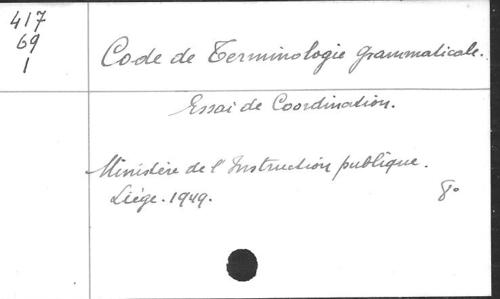 417
69
1
Code de Terminologie grammaticale.
Essai de Coordination.
Ministère de l'Instruction publique.
Liége. 1949.
8°